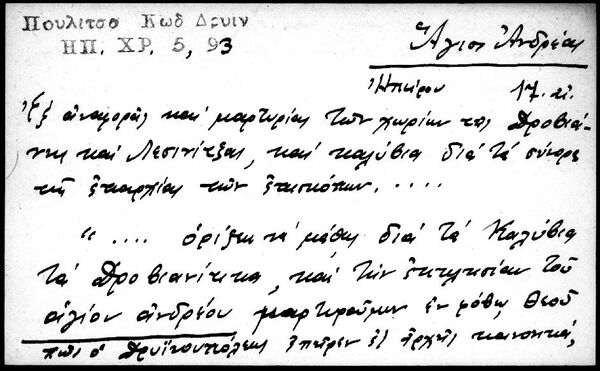 Πουλιτσα Κωδ Δρυιν
ΗΠ. ΧΡ. 5, 93
Ἅγιοι Ἀνδρέας
Ἠπείρου 17. αἰ.
Ἐξ ἀναφορᾶς καί μαρτυρίας τῶν χωρίων της Δροβιά-
νης καί Λεσινίτζας, καί καλύβια διά τά σύνορα
τῆς ἐπαρχίας τῶν ἐπισκόπων. ....
" .... ὁρίζει νά μάθῃ διά τά Καλύβια
τά Δροβιανίτικα, καί τήν ἐκκλησίαν τοῦ
ἁγίου ἀνδρέου μαρτυροῦμεν ἐν φόβῳ Θεοῦ
πῶς ὁ Δρυϊνουπόλεως ἔπαιρεν ἐξ ἀρχῆς κανονικά,